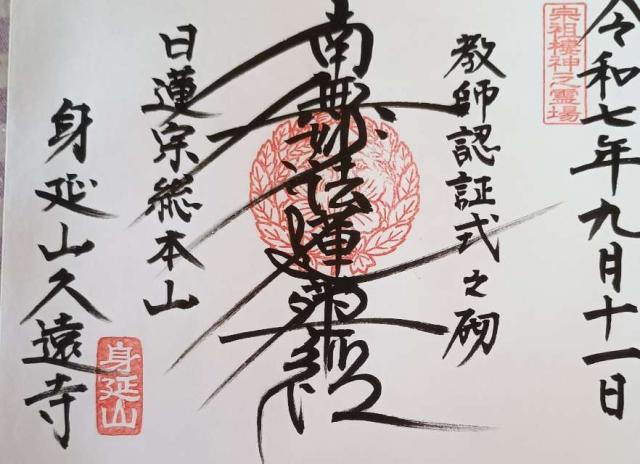 令和七年九月十一日
宗祖棲神之霊場
教師認証式之砌
南無妙法蓮華経
日蓮宗総本山
身延山久遠寺
身延山